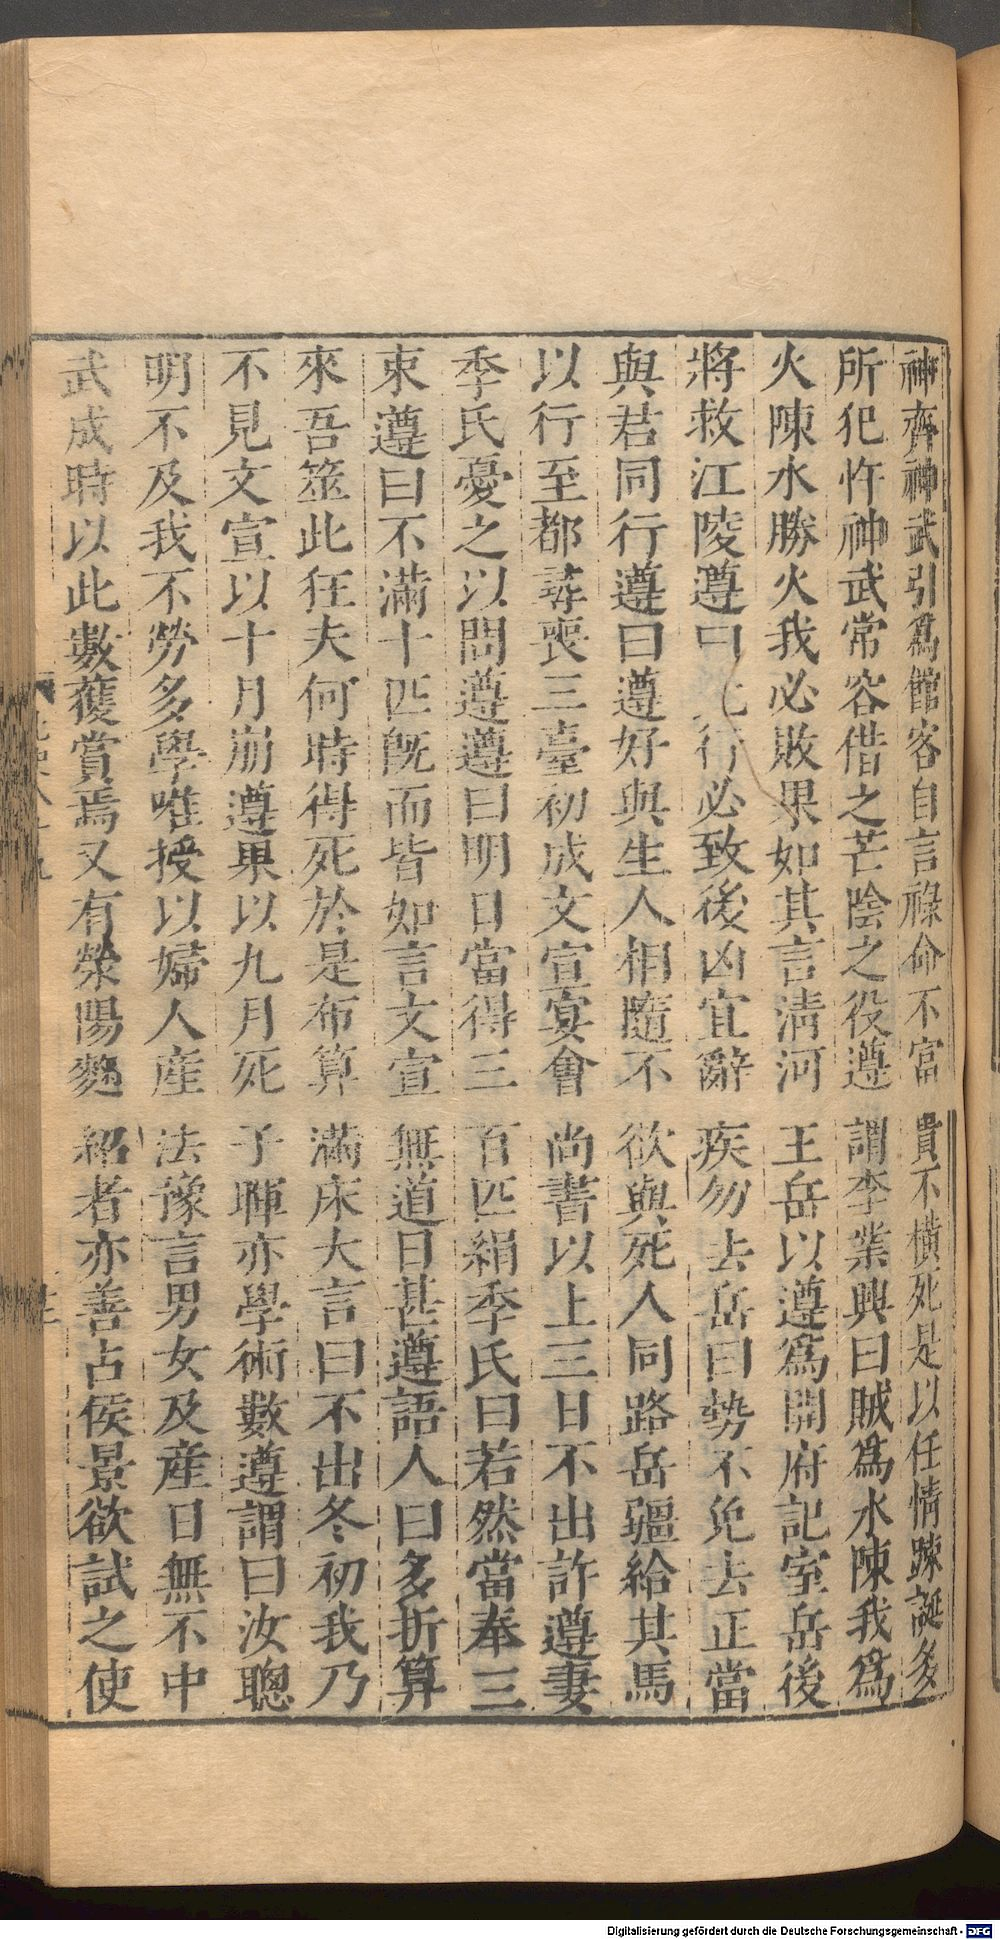 神齊神武引爲館客自言祿命不富貴不橫死是以任情疎誕多
所犯忤神武常容借之芒陰之役遵謂李業興曰賊爲水陳我爲
火陳水勝火我必敗果如其言清河王岳以遵爲開府記室岳後
將救江陵遵曰此行必致後凶宜辭疾勿去岳曰勢不免去正當
與君同行遵曰遵好與生人相隨不欲與死人同路岳疆給其馬
以行至都尋喪三臺初成文宣宴會尚書以上三日不出許遵妻
季氏憂之以問遵遵曰明日當得三百匹絹季氏曰若然當奉三
束遵曰不滿十匹旣而皆如言文宣無道日甚遵語人曰多折算
來吾筮此狂夫何時得死於是布算滿床大言曰不出冬初我乃
不見文宣以十月崩遵果以九月死子暉亦學術數遵謂曰汝聰
明不及我不勞多學唯授以婦人産法豫言男女及産日無不中
武成時以此數獲賞焉又有滎陽麴紹者亦善占侯景欲試之使
Digitalisierung gefördert durch die Deutsche Forschungsgemeinschaft - DFG